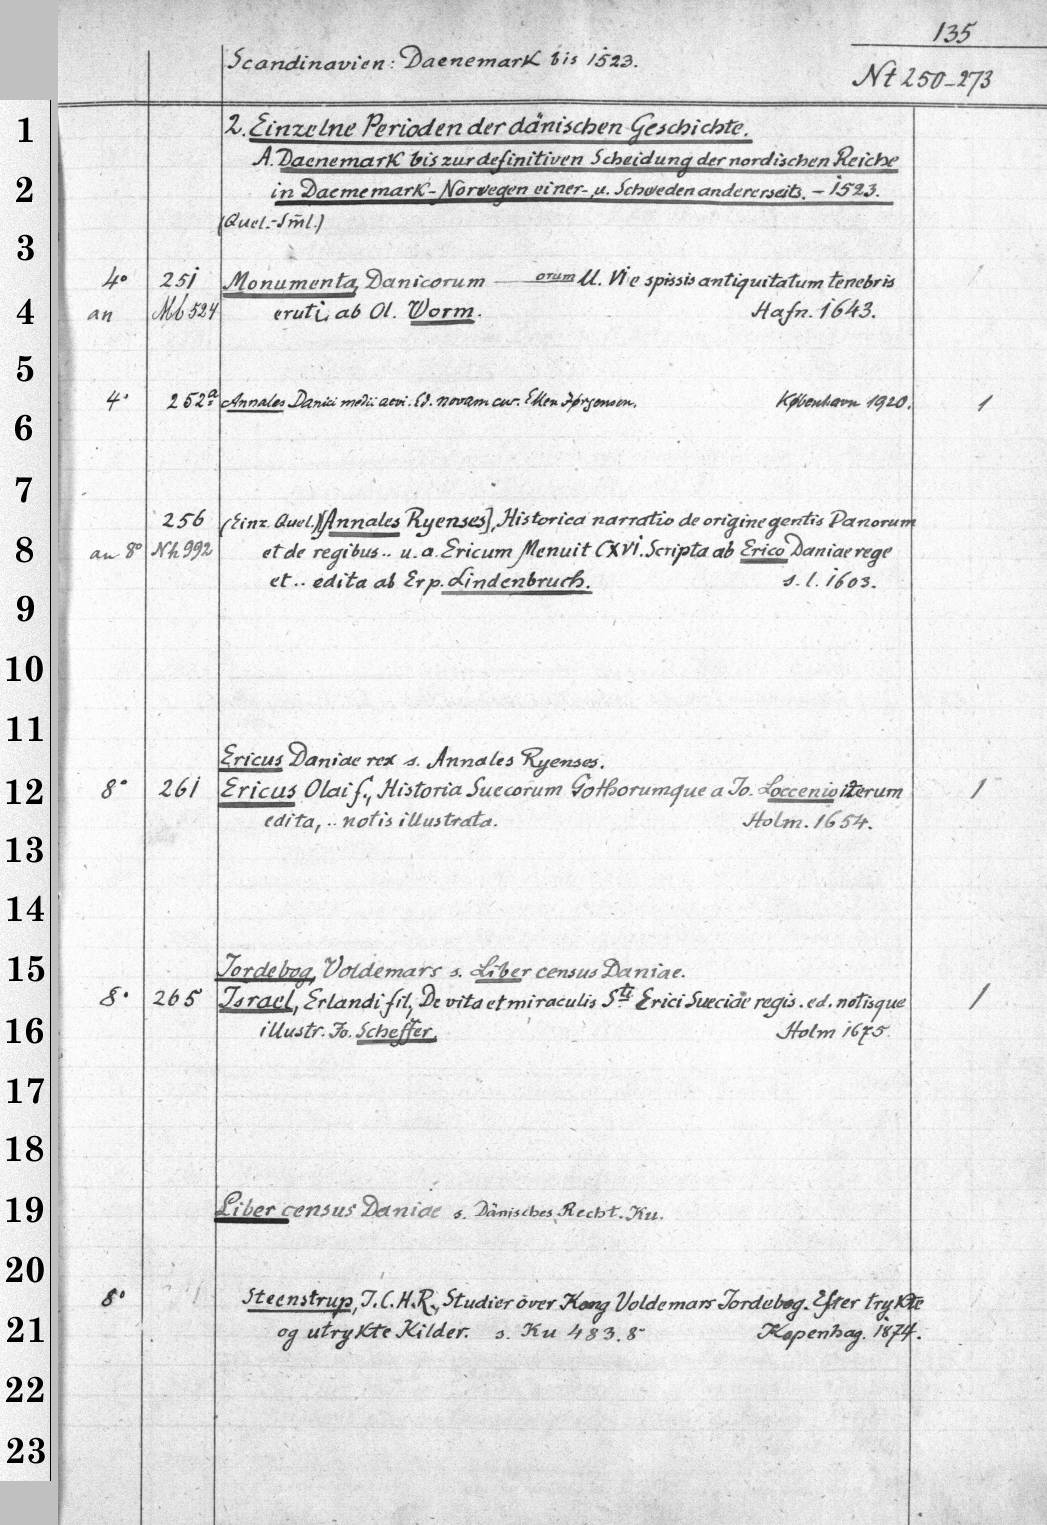 135
Scandinavien: Daenemark bis 1523.
Nt 250-273
1 2. Einzelne Perioden der dänischen Geschichte.
A. Daenemark bis zur definitiven Scheidung der nordischen Reiche
2 in Daenemark-Norwegen einer-, u. Schweden andererseits. - 1523.
(Quel.-Sm̅l.)
3
4° 251 Monumenta, Danicorum —orum ll. VI e spissis antiquitatum tenebris
4 an Mb 524 eruti, ab Ol. Worm. Hafn. 1643.
5
4° 252a Annales Danici medii aevi. Ed. novam cur. Ellen Jørgensen. København 1920. 1
6
7
256 (Einz. Quel.) [Annales Ryenses], Historica narratio de origine gentis Danorum
8 an 8° Nh 992 et de regibus .. u. a. Ericum Menuit CXVI. Scripta ab Erico Daniae rege
et .. edita ab Erp. Lindenbruch. s. l. 1603.
9
10
11
Ericus Daniae rex s. Annales Ryenses.
12 8° 261 Ericus Olai f., Historia Suecorum Gothorumque a Jo. Loccenio iterum 1
edita, .. notis illustrata. Holm. 1654.
13
14
15 Jordebog, Voldemars s. Liber census Daniae.
8° 265 Israel, Erlandi fil., De vita et miraculis Sti Erici Sueciae regis. ed. notisque 1
16 illustr. Jo. Scheffer. Holm 1675.
17
18
19 Liber census Daniae s. Dänisches Recht. Ku.
20
8° Steenstrup, J.C.H.R., Studier over Kong Voldemars Jordebog. Efter trykte
21 og utrykte Kilder. s. Ku 483.8° Kopenhag. 1874.
22
23